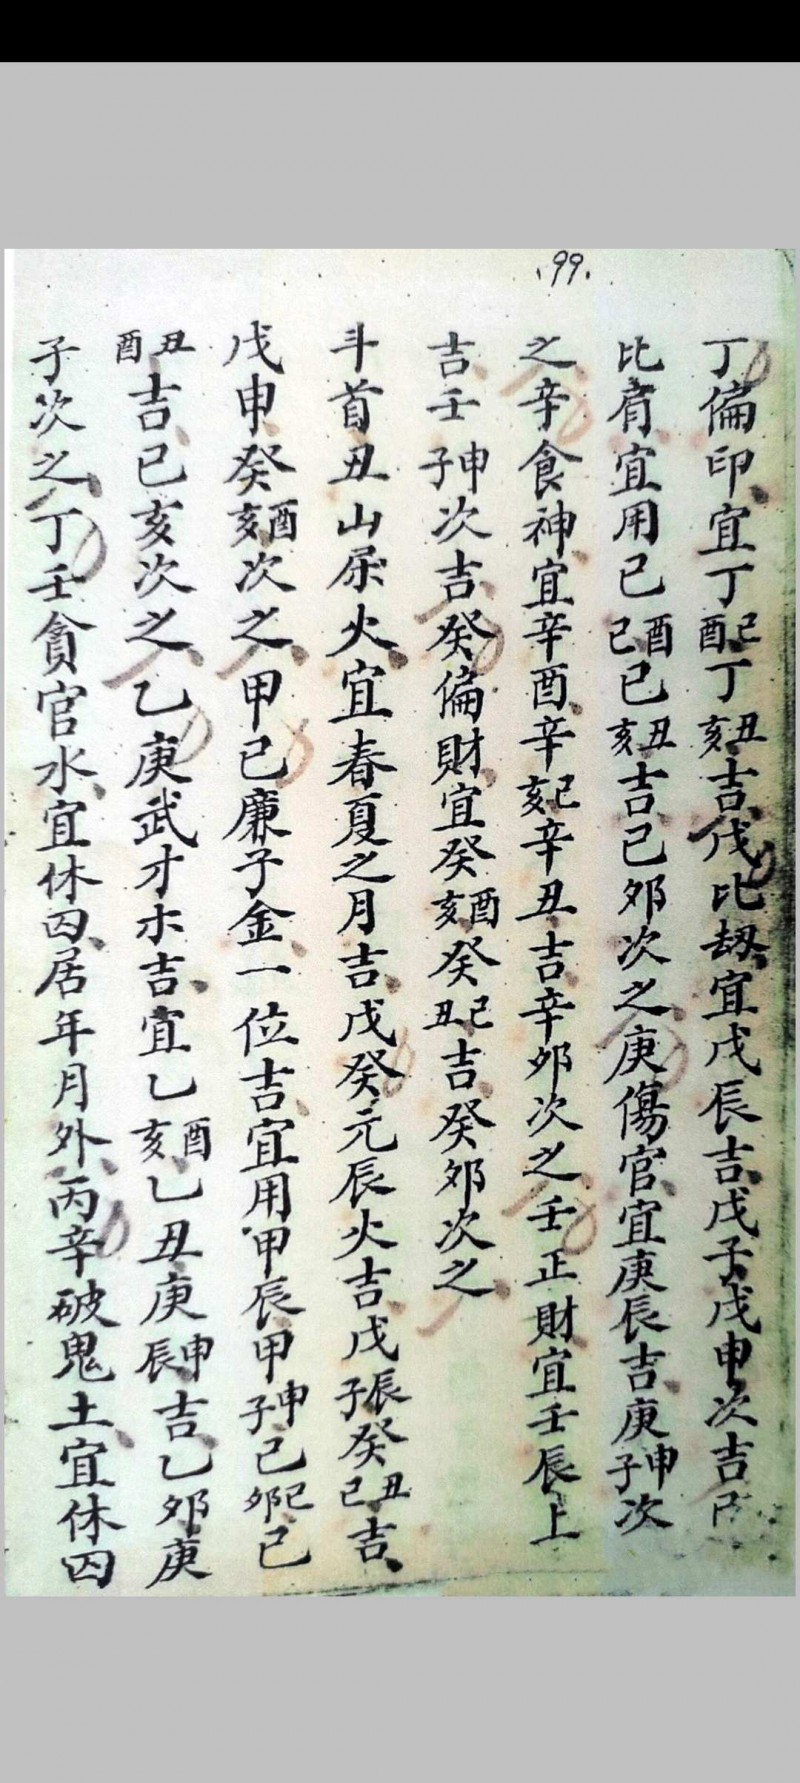 99
丁偏印宜丁酉巳丁亥丑吉戊比劫宜戊辰吉戊子戊申次吉己
比肩宜用己巳酉己亥丑吉己夘次之庚傷官宜庚辰吉庚子申次
之辛食神宜辛酉辛亥巳辛丑吉辛夘次之壬正財宜壬辰上
吉壬子申次吉癸偏財宜癸亥酉癸丑巳吉癸夘次之
斗首丑山属火宜春夏之月吉戊癸元辰火吉戊子辰癸巳丑吉
戊申癸亥酉次之甲己廉子金一位吉宜用甲辰甲子申己夘巳己
酉丑吉己亥次之乙庚武才木吉宜乙亥酉乙丑庚辰申吉乙夘庚
子次之丁壬貪官水宜休囚居年月外丙辛破鬼土宜休囚